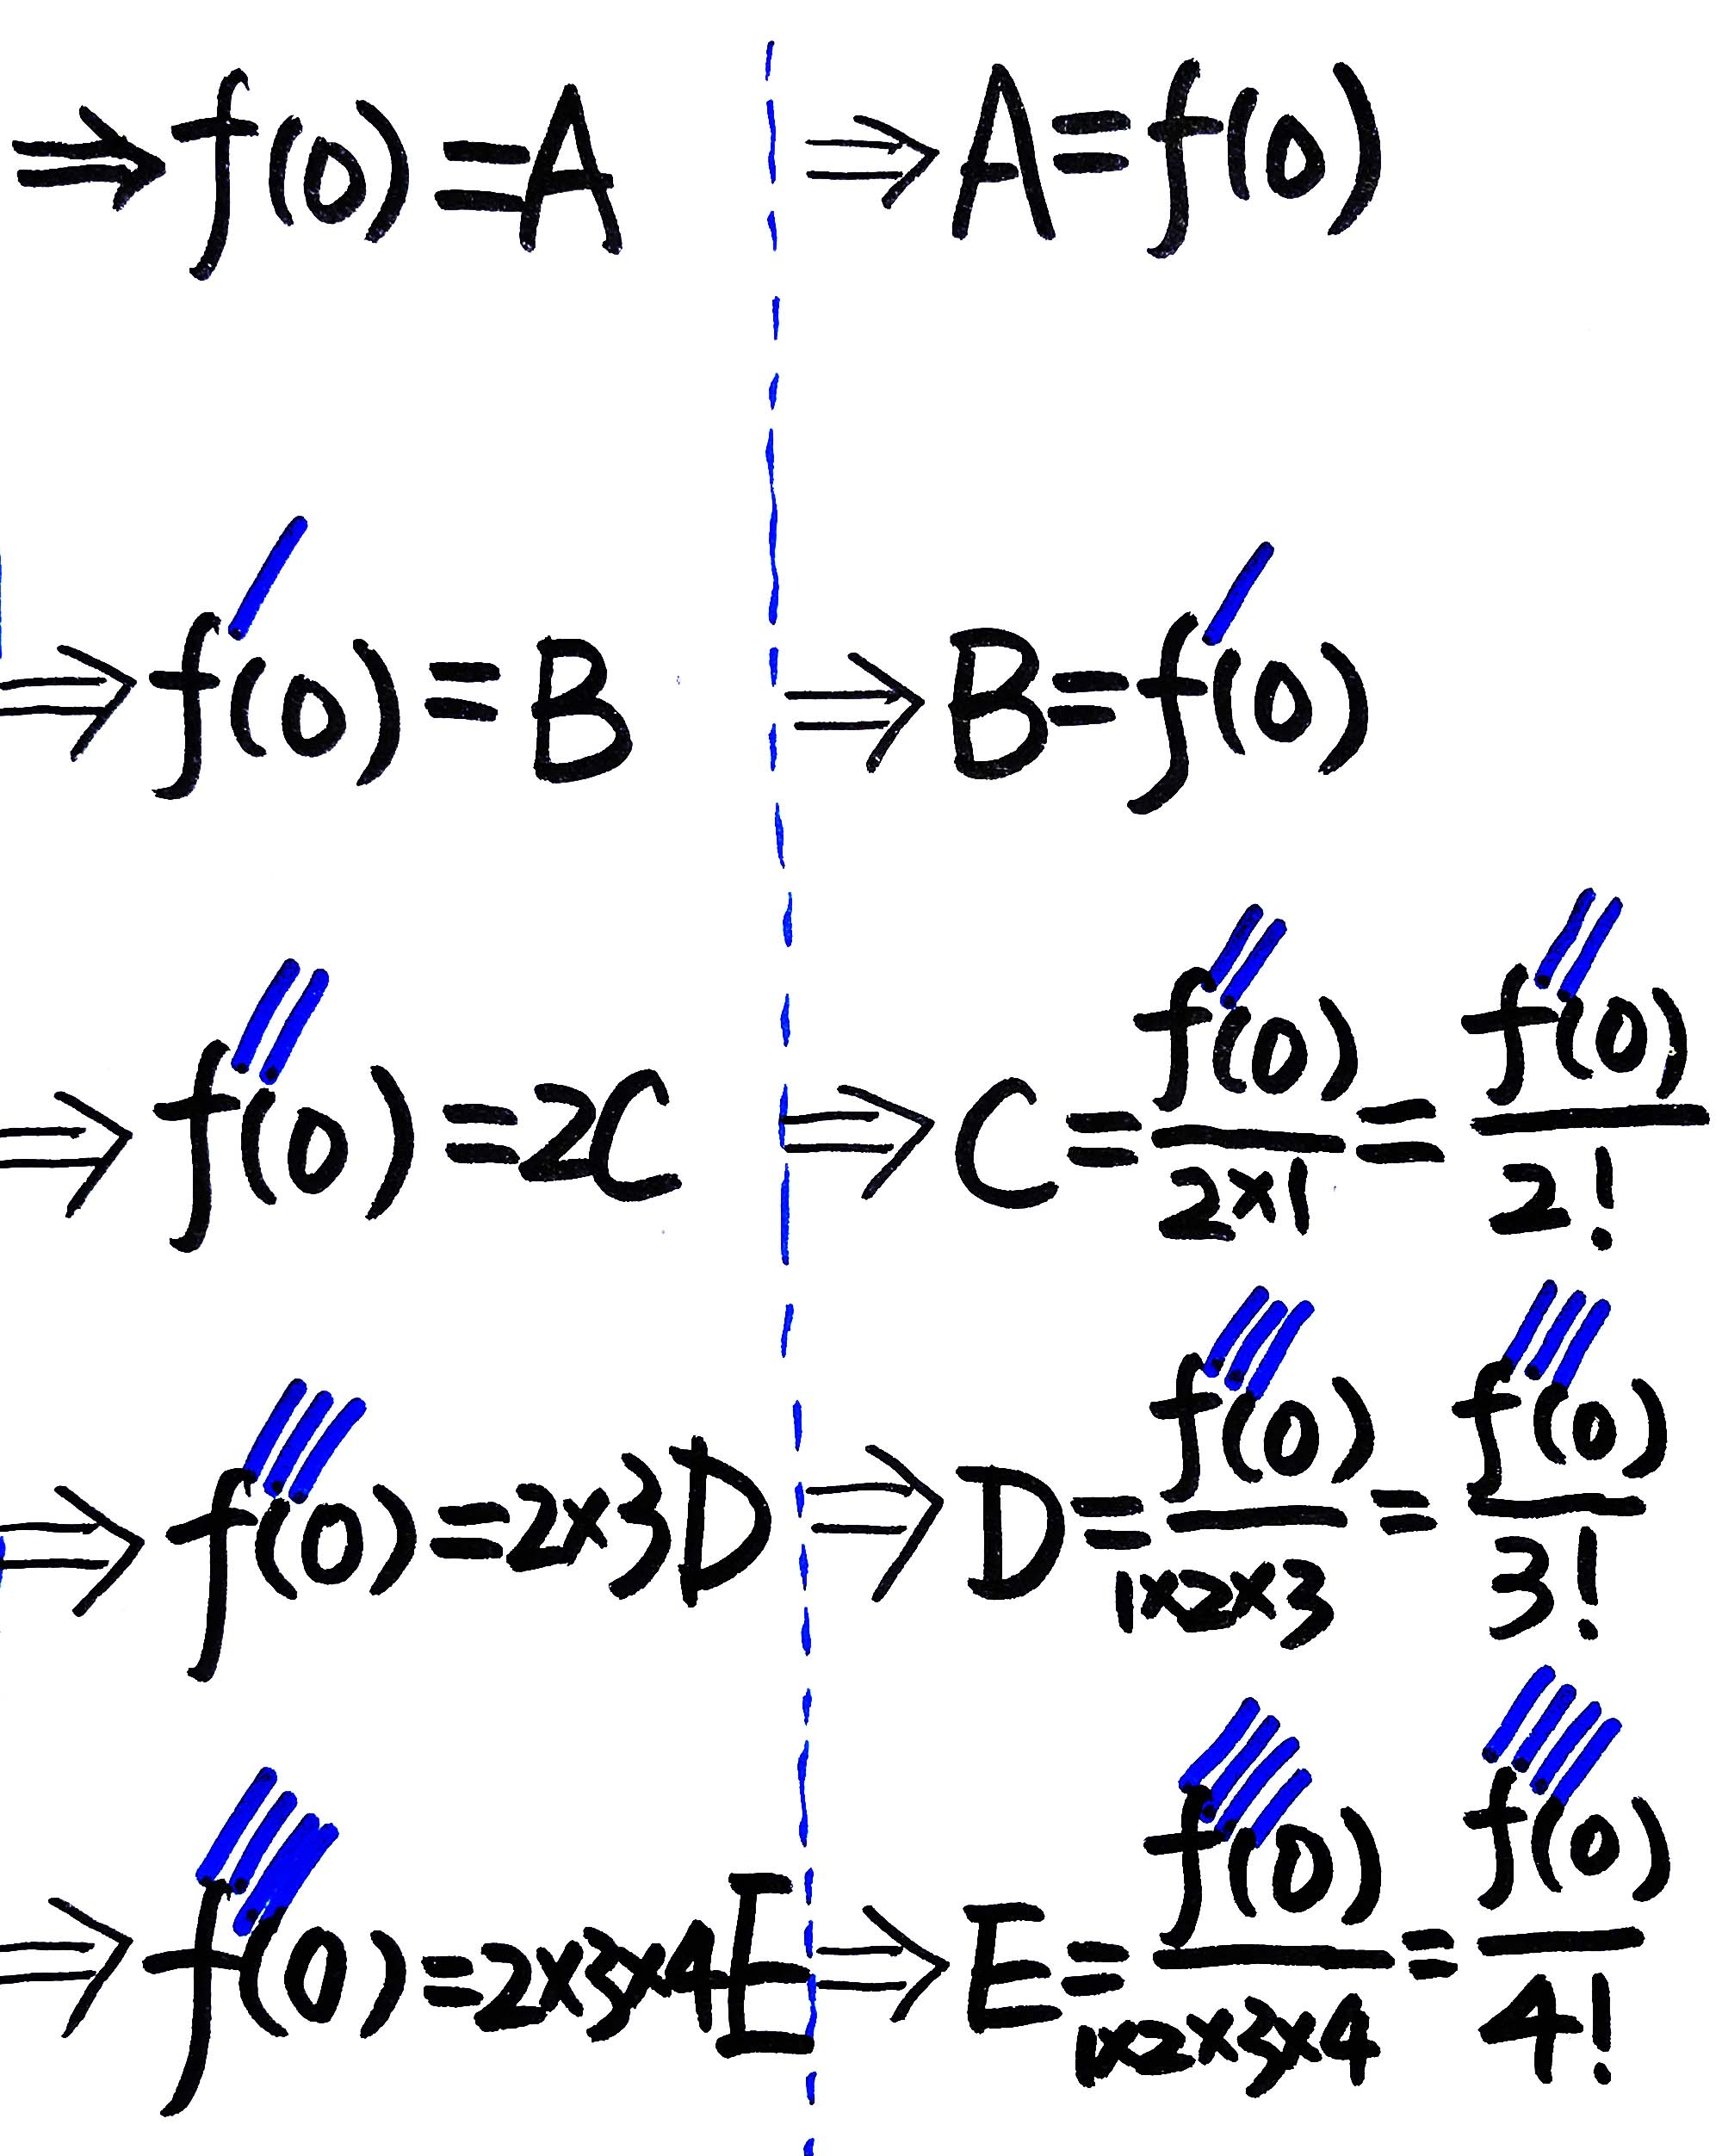 ⇒f(0)=A ⇒A=f(0)
⇒f′(0)=B ⇒B=f′(0)
⇒f′′(0)=2C ⇒C=f′′(0)/2×1=f′′(0)/2!
⇒f′′′(0)=2×3D ⇒D=f′′′(0)/1×2×3=f′′′(0)/3!
⇒f′′′′(0)=2×3×4E ⇒E=f′′′′(0)/1×2×3×4=f′′′′(0)/4!